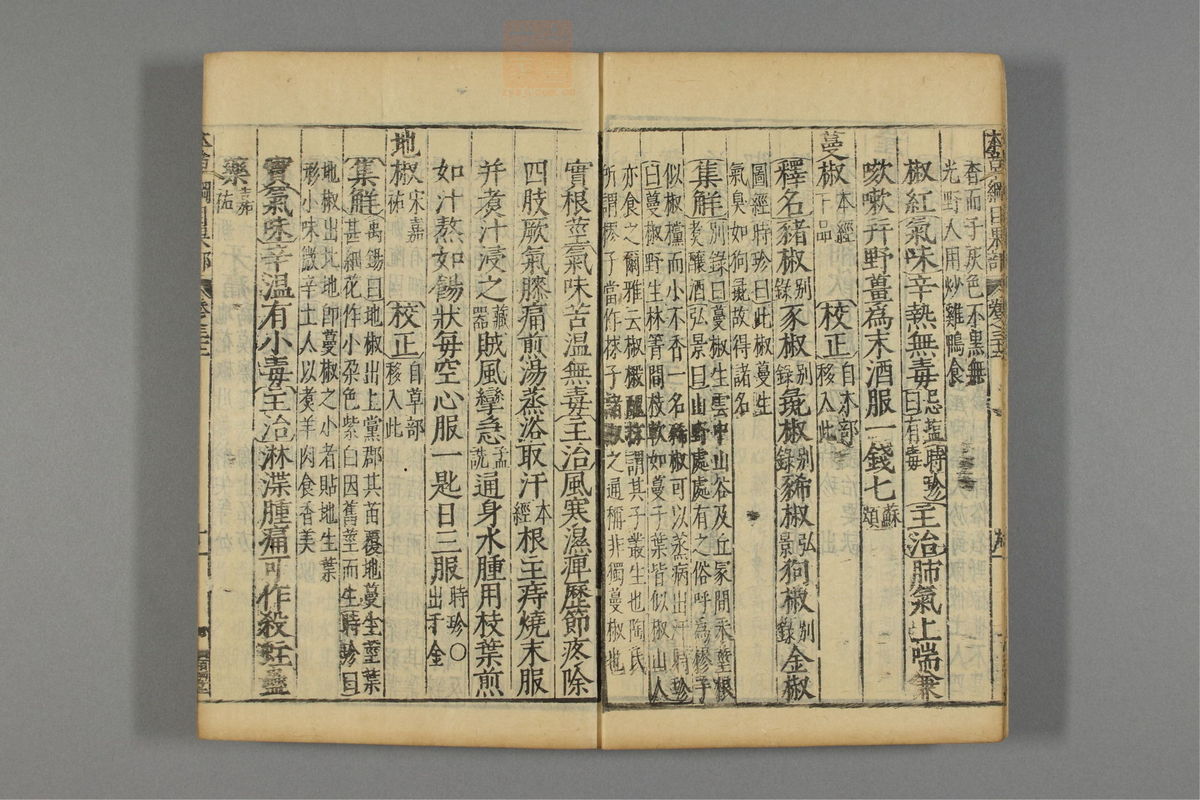 香而子灰色不黑無
光野人用炒雞鴨食
椒紅氣味辛熱無毒忌鹽時珍曰有毒主治肺氣上喘兼
咳嗽幷野薑為末酒服一錢七蘇頌
蔓椒本經下品校正自木部移入此
釋名豬椒別錄豕椒別錄彘椒別錄豨椒弘景狗椒別錄金椒
圖經時珍曰此椒蔓生
氣臭如狗彘故得諸名
集解別錄曰蔓椒生雲中山谷及丘冢間采莖根
煑釀酒弘景曰山野處處有之俗呼為樛子
似椒欓而小不香一名豨椒可以蒸病出汗時珍
曰蔓椒野生林箐間枝軟如蔓子葉皆似椒山人
亦食之爾雅云椒樧醜莍謂其子叢生也陶氏
所謂樛子當作莍子諸椒之通稱非獨蔓椒也
實根莖氣味苦溫無毒主治風寒濕痺歷節疼除
四肢厥氣膝痛煎湯蒸浴取汗本經根主痔燒末服
幷煑汁浸之藏器賊風攣急孟詵通身水腫用枝葉煎
如汁熬如餳狀每空心服一匙日三服時珍〇出千金
地椒宋嘉祐校正自草部移入此
集解禹錫曰地椒出上黨郡其苗覆地蔓生莖葉
甚細花作小朶色紫白因舊莖而生時珍曰
地椒出北地即蔓椒之小者貼地生葉
形小味微辛土人以煑羊肉食香美
實氣味辛溫有小毒主治淋渫腫痛可作殺蛀蠱
藥嘉祐